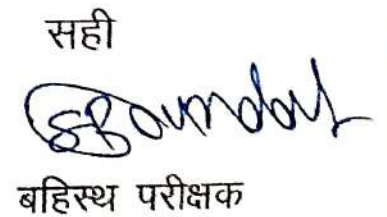 सही
बहिस्थ परीक्षक